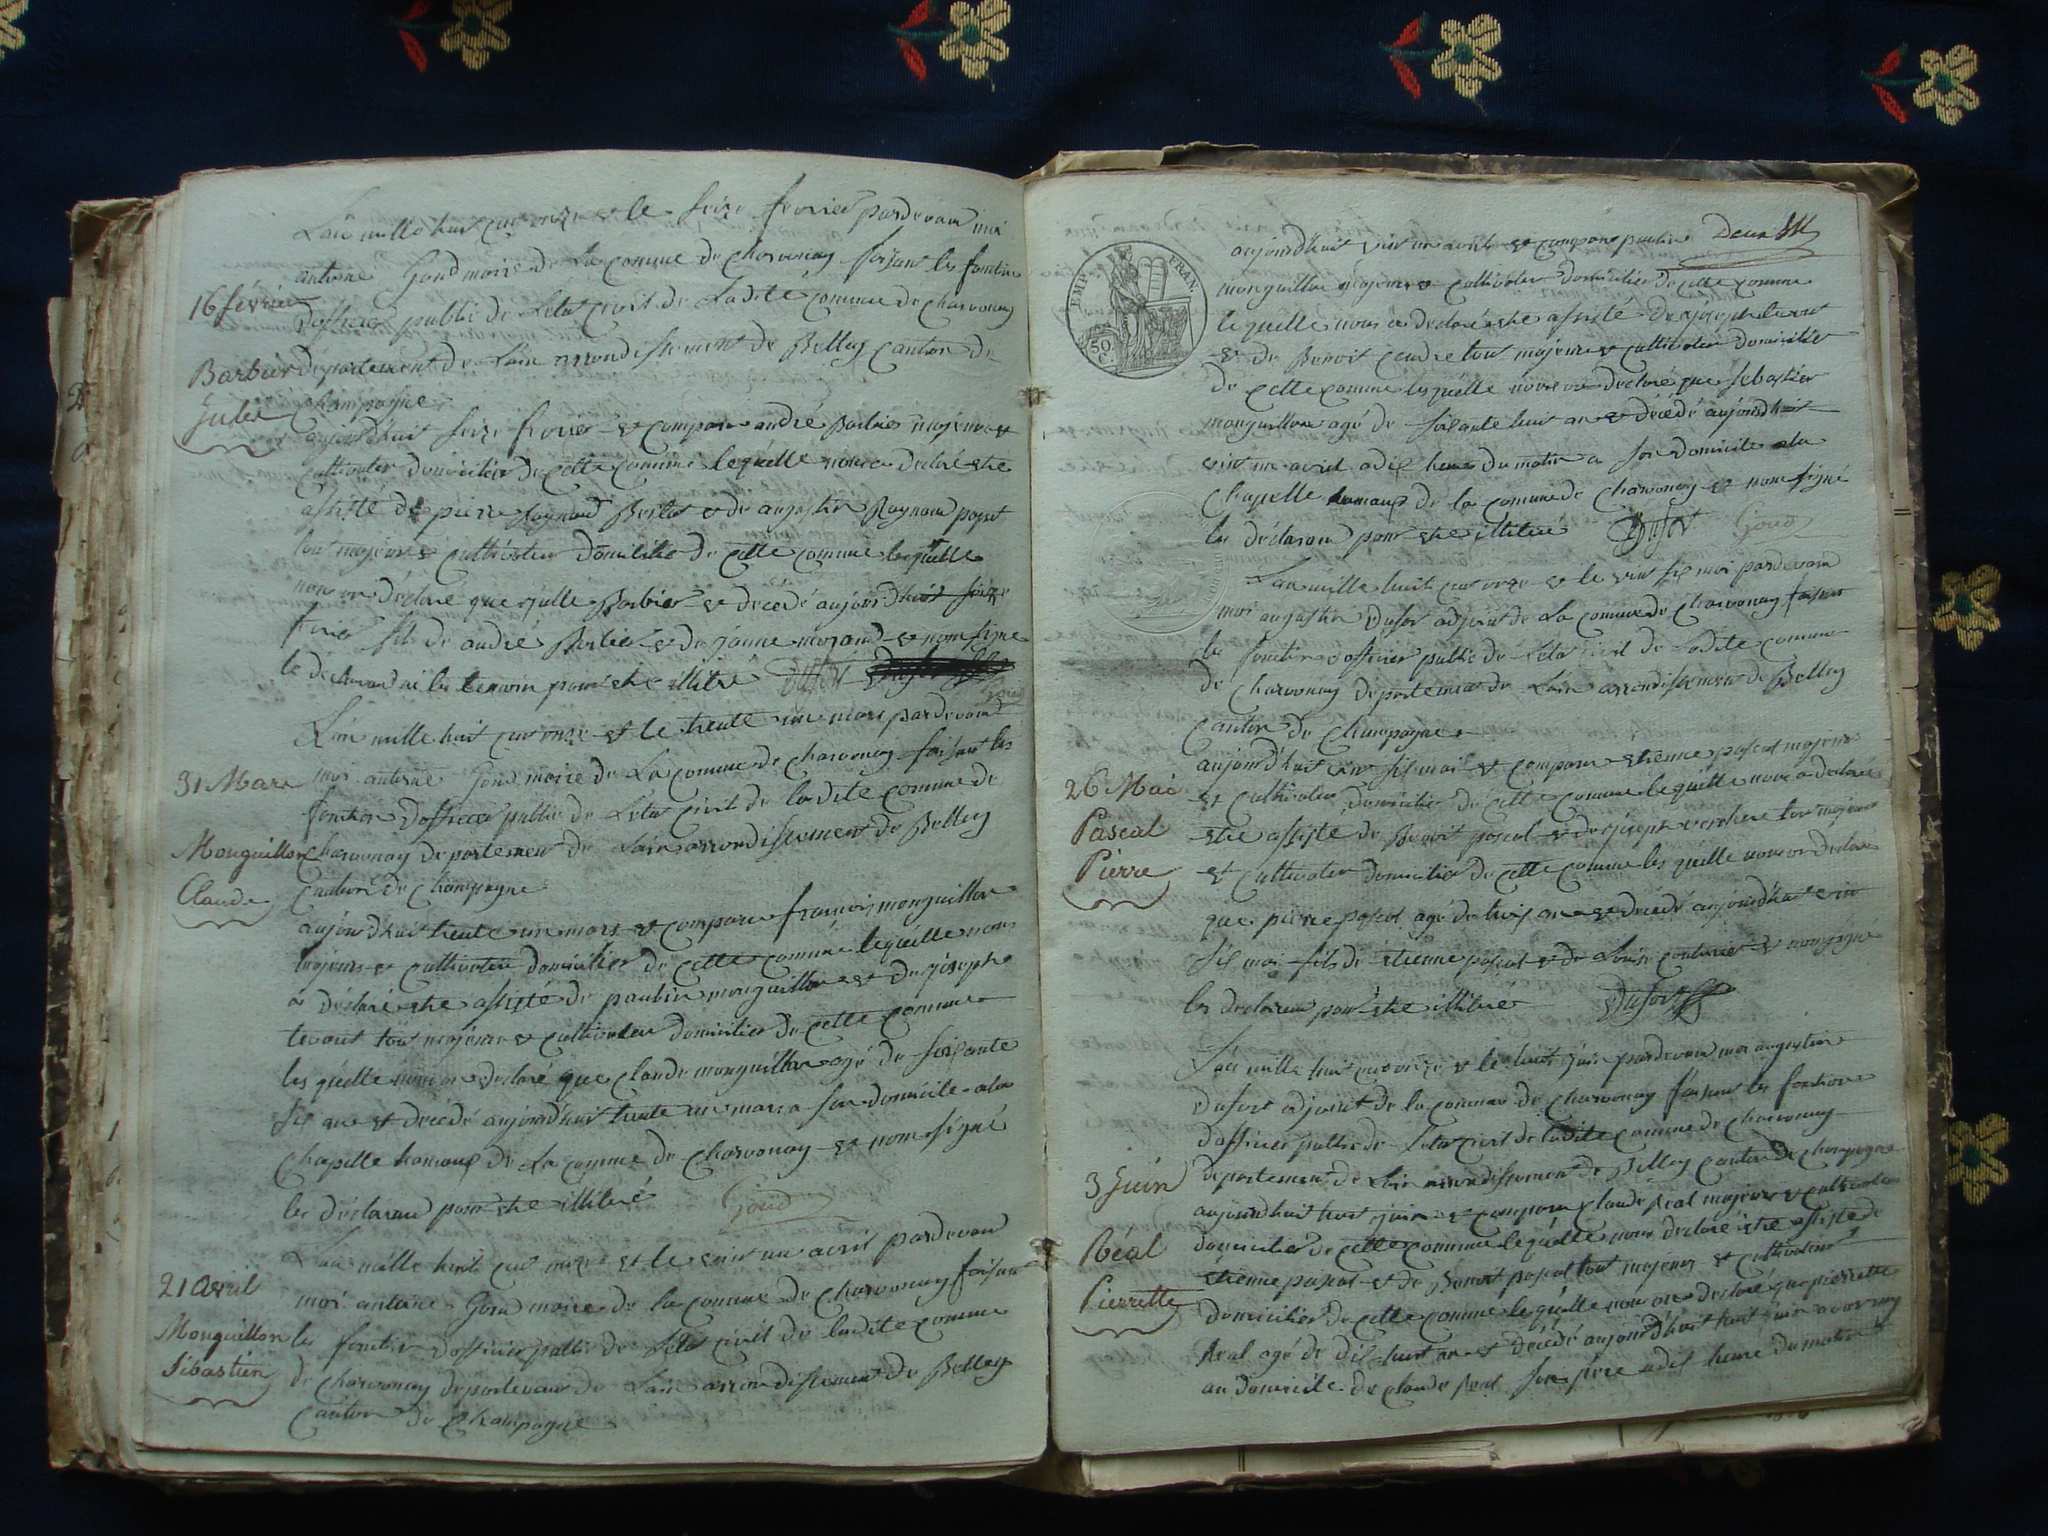 L'an mille huit cent onze et le seize fevrier pardevan moi
antoine Goud maire de La comune de Charvonay faisant les fonction
16 fevrier
d'officier public de Letat civil de Ladite comune de Charvonay
Barbier
departement de Lain arrondissement de Belley Canton de
Jules
Champagne
aujourdhuit seize fevrier et comparu andré Barbier majeur et
cultivateur domicilier de cette comune lequelle nous a declaré etre
assisté de pierre Raynaud Berlet et de augustin Raynaud
tout majeurs et cultivateur domicilié de cette comune lesquelle
nous on déclaré que julle Barbier et décedé aujourdhuit seize
fevrier fils de andré Barbier et de jeanne morand et nom signe
le déclarand ni les temoin pour etre illitré Dufor
Goud
L'an mille huit cent onze et le trente un mars pardevand
31 Mars
moi antoine Goud maire de La comune de Charvonay faisant les
fonction d'officier public de Letat civil de ladite comune de
Monguillon
Charvonay departement de Lain arrondissement de Belley
Claude
Canton de Champagne
aujourdhuit trente un mars et comparu francois monguillon
majeur et cultivateur domicilier de cette comune lequelle nous
a déclaré etre assisté de paulin monguillon et de joseph
tevant tout majeurs et cultivateur domicilier de cette comune
lesquelle nous on declaré que claude monguillon agé de soisante
sis an et décédé aujourdhuit trente un mars a son domicile a la
Chapelle hamaux de La comune de Charvonay et nom signé
les déclaran pour etre illitré Goud
L'an mille huit cent onze et le vint un avril pardevan
21 Avril
moi antoine Goud maire de la comune de Charvonay faisant
Monguillon
les fonction d'officier public de Letat civil de ladite comune
Sébastien
de Charvonay departement de Lain arrondissement de Belley
Canton de Champagne
Deux
EMP. FRAN.
50 C.
aujourdhuit vint un avril et comparu paulin
monguillon majeur et cultivateur domicilier de cette comune
lequelle nous a declaré etre assisté de joseph
et de Benoit tout majeur et cultivateur domicilier
de cette comune lesquelle nous on declaré que sebastien
monguillon agé de soisante huit an et décédé aujourdhuit
vint un avril a dis heure du matin a son domicile a la
Chapelle hamaux de la comune de Charvonay et nom signé
les déclaran pour etre illitré Dufor Goud
L'an mille huit cent onze et le vint sis mai pardevan
moi augustin Dufor adjoint de La comune de Charvonay faisant
les fonction d'officier public de Letat civil de Ladite comune
de Charvonay departement de Lain arrondissement de Belley
Canton de Champagne
26 Mai
aujourdhuit vint sis mai et comparu etienne pascal majeur
et cultivateur domicilier de cette comune lequelle nous a declaré
Pascal
etre assisté de Benoit pascal et de joseph tout majeur
Pierre
et cultivateur domicilier de cette comune lesquelle nous on declaré
que pierre pascal agé de trois an et décedé aujourdhuit vint
sis mai fils de etienne pascal et de Louise et nom signe
les declaran pour etre illitré Dufor
L'an mille huit cent onze et le huit juin pardevan moi augustin
Dufor adjoint de la comune de Charvonay faisant les fonction
d'officier public de Letat civil de ladite comune de Charvonay
3 Juin
departement de Lain arrondissement de Belley Canton de Champagne
aujourdhuit huit juin et comparu claude Réal majeur et cultivateur
Réal
domicilier de cette comune lequelle nous declaré etre assisté de
Pierrette
etienne pascal et de Benoit pascal tout majeurs et cultivateur
domicilier de cette comune lesquelle nous on declaré que pierrette
Real agé de dis huit an et décédé aujourdhuit huit juin
au domicile de claude Real son père a dis heure du matin